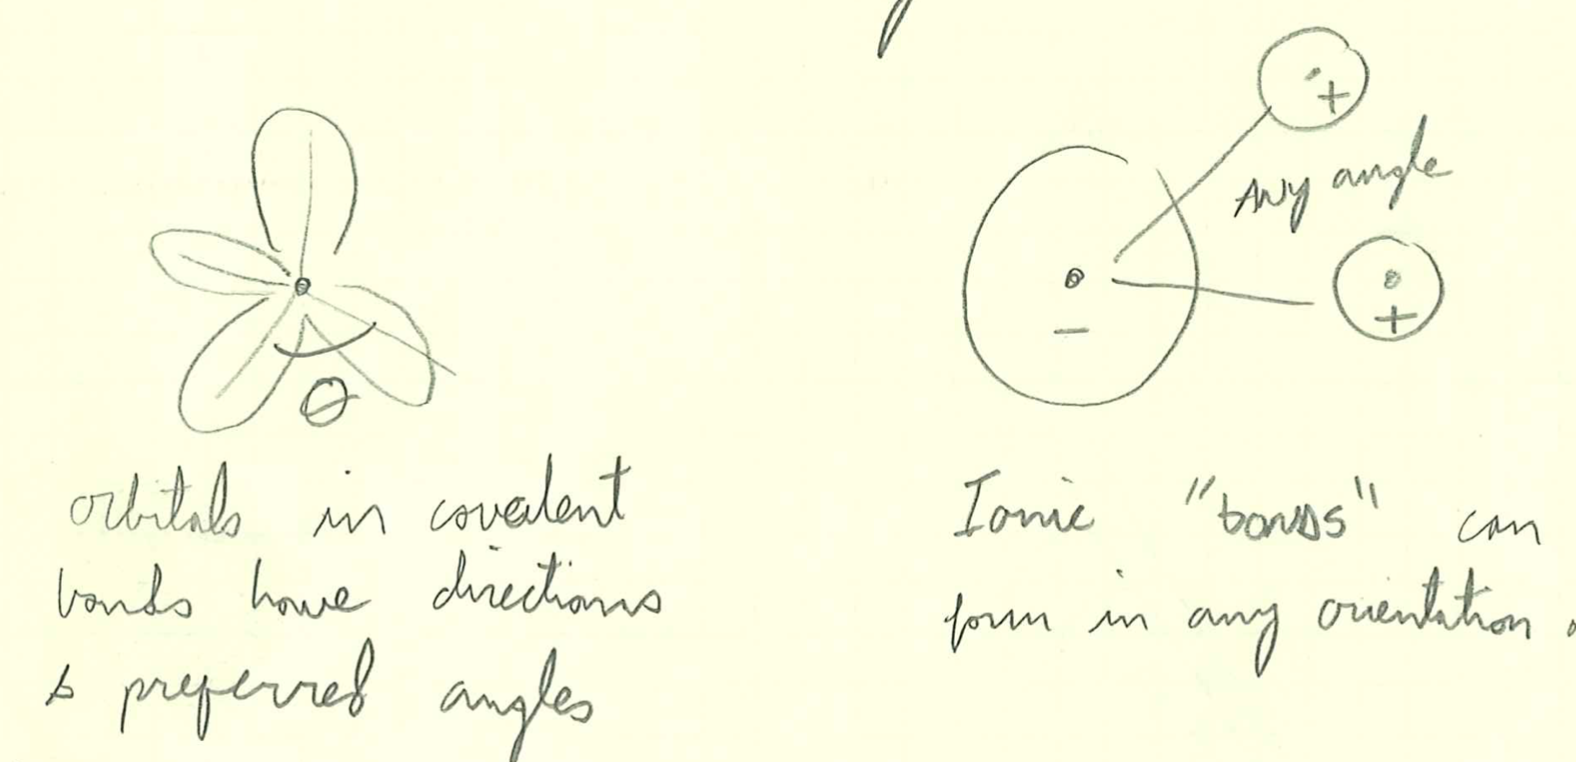 +
Any angle
+
−
θ
orbitals in covalent
bonds have directions
& preferred angles
Ionic "bonds" can
form in any orientation